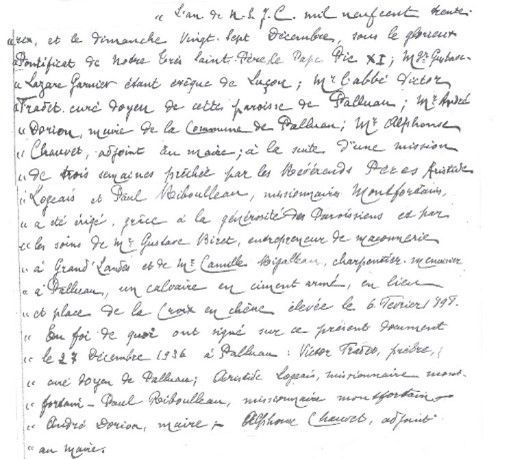 " L'an de N.S.J.C. mil neufcent trente
six, et le dimanche Vingt-Sept Décembre, sous le glorieux
Pontificat de Notre Très Saint-Père le Pape Pie XI; Mgr Gustave-
" Lazare Garnier étant évêque de Luçon; Mr l'abbé Victor
Tradet curé doyen de cette paroisse de Palluau; Mr André
" Dorion, maire de la Commune de Palluau; Mr Alphonse
" Chauvet, adjoint au maire; à la suite d'une mission
" de trois semaines prêchée par les Révérends Pères Aristide
" Logeais et Paul Riboulleau, missionnaires Montfortains,
" a été érigé, grâce à la générosité des Paroissiens et par
" les soins de Mr Gustave Biret, entrepreneur de maçonnerie
" à Grand'Landes et de Mr Camille Rigalleau, charpentier-menuisier
" à Palluau, un calvaire en ciment armé, en lieu
" et place de la Croix en chêne élevée le 6 Février
" En foi de quoi ont signé sur ce présent document
" le 27 Décembre 1936 à Palluau: Victor Tradet, prêtre,
" curé doyen de Palluau; Aristide Logeais, missionnaire mont-
" fortain - Paul Riboulleau, missionnaire montfortain -
" André Dorion, maire - Alphonse Chauvet, adjoint
" au maire.